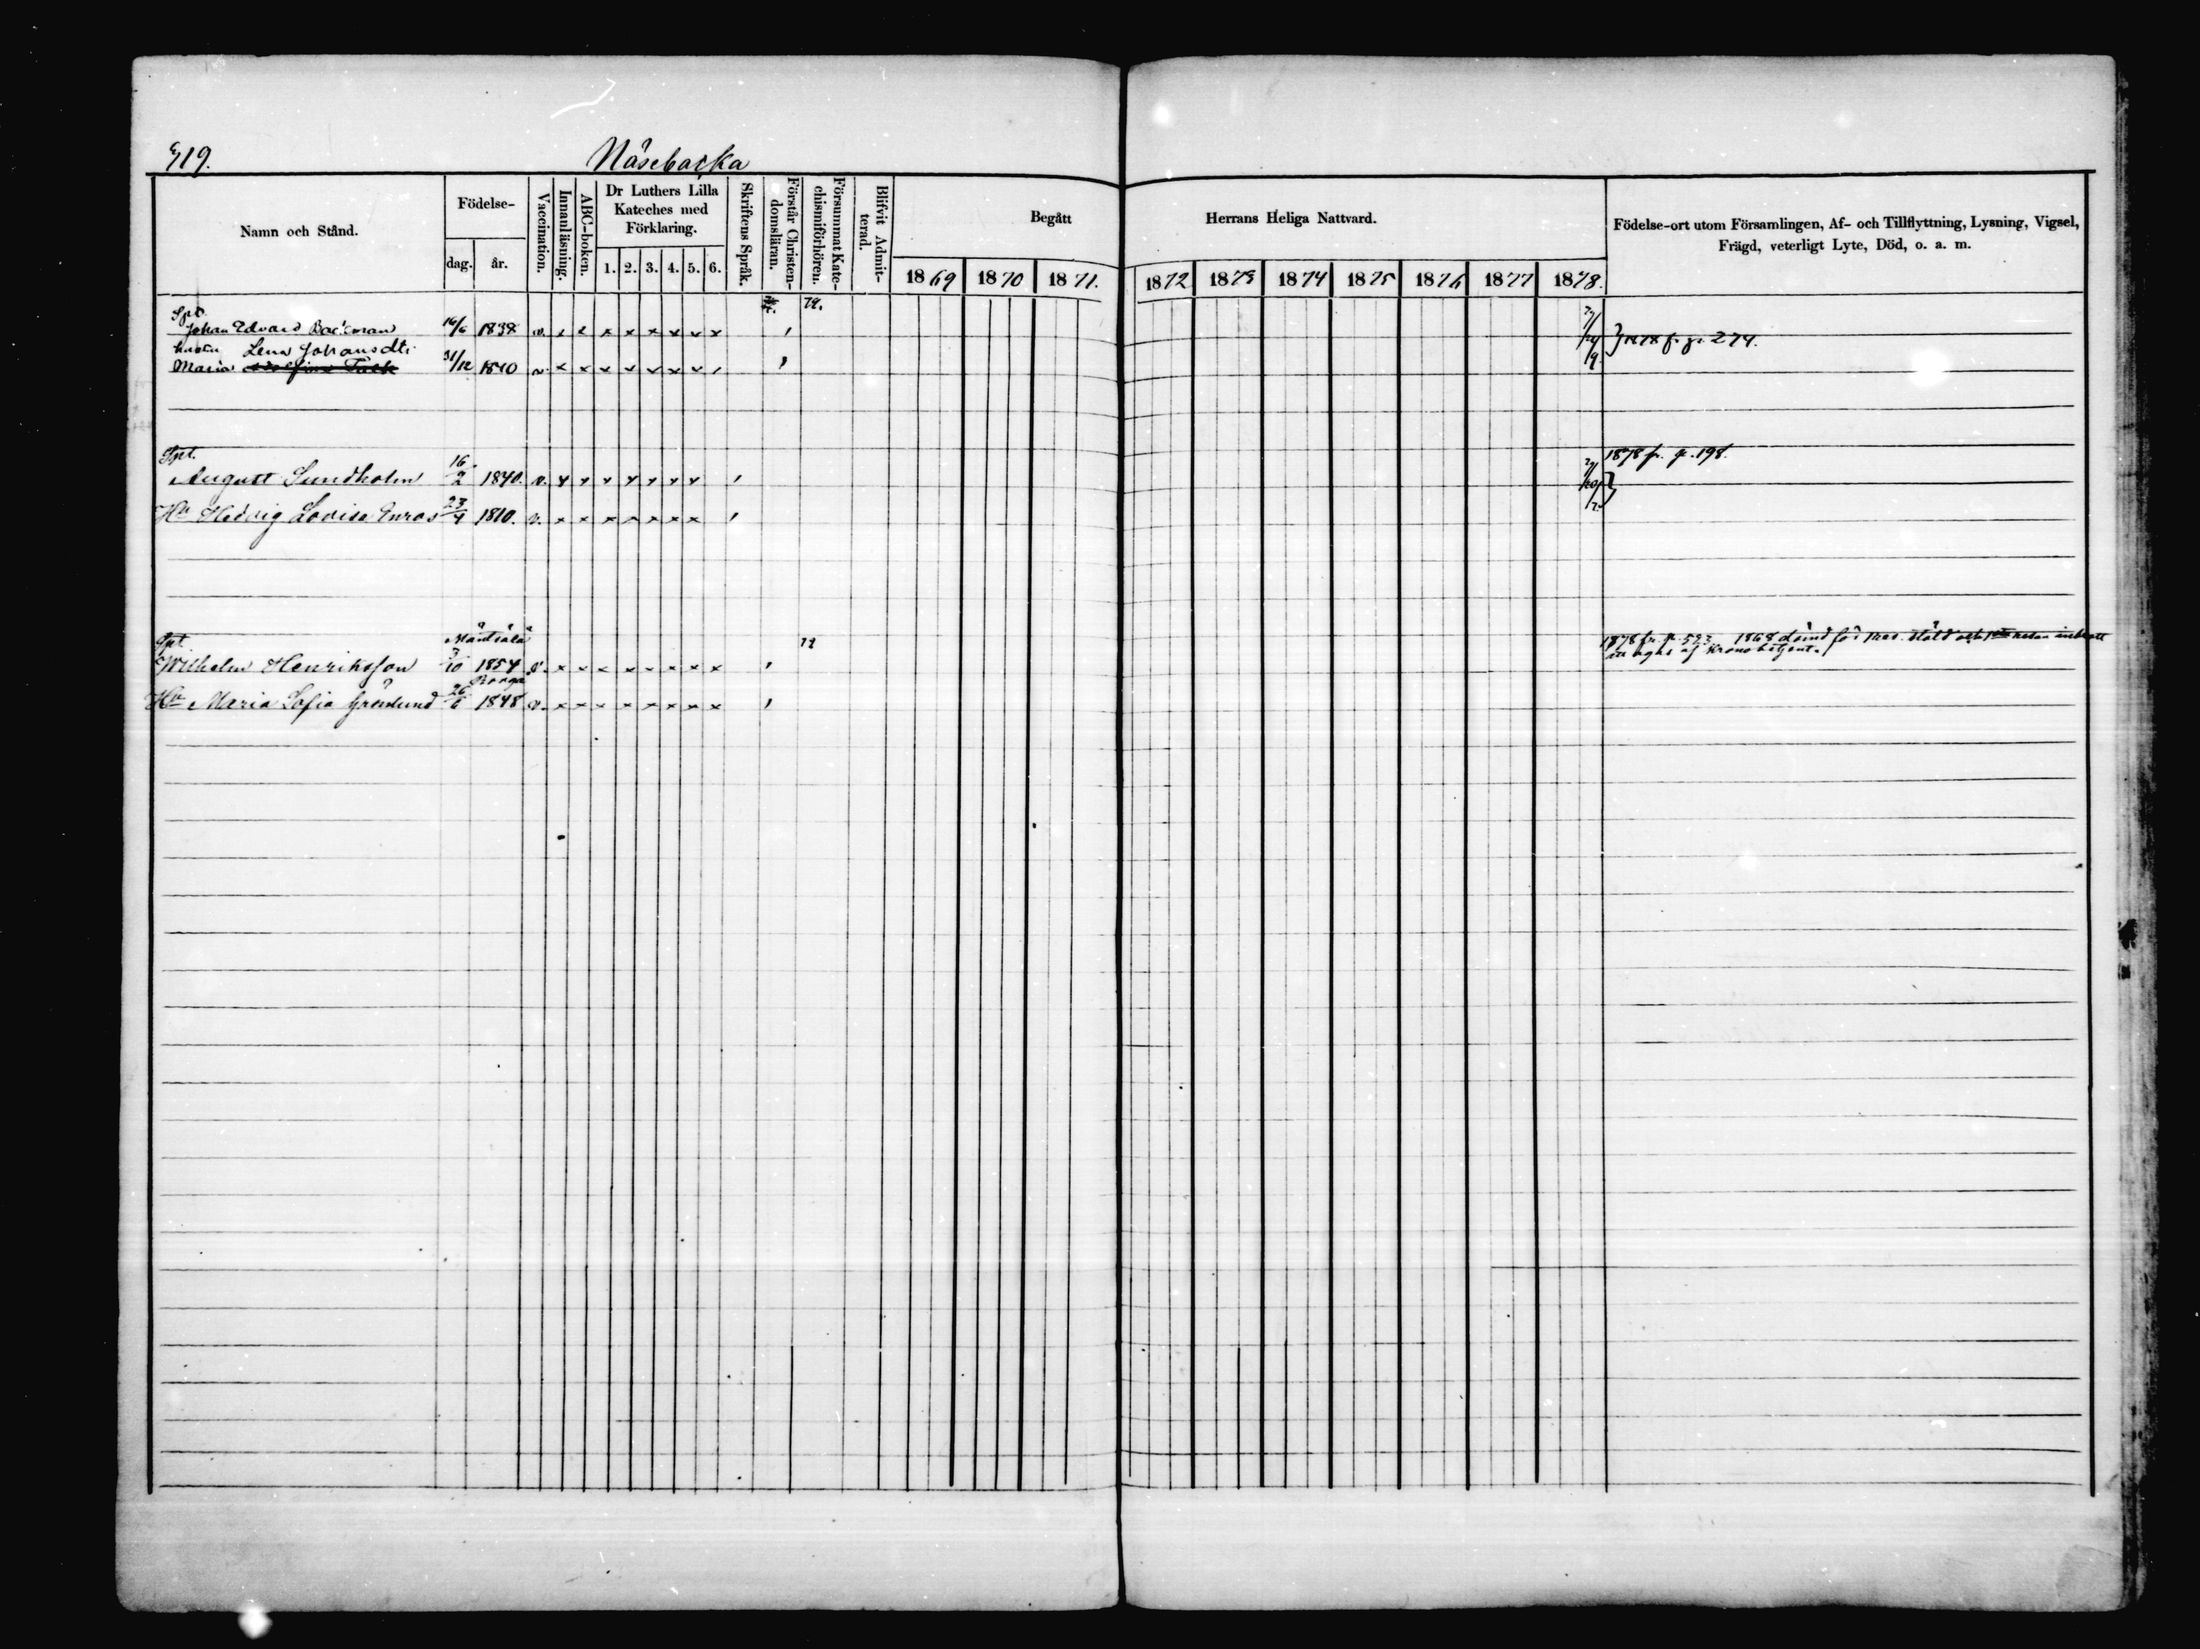 Näsebacka
Namn och Stånd.
Födelse-
dag.
år.
Vaccination.
Innanläsning.
ABC-boken.
Dr Luthers Lilla
Kateches med
Förklaring.
1. 2. 3. 4. 5. 6.
Skriftens Språk.
Förstår Christen-
domsläran.
Försummat Kate-
chismiförhören.
Blifvit Admit-
terad.
Begått
Herrans Heliga Nattvard.
1869 1870 1871. 1872 1873 1874 1875 1876 1877 1878.
Födelse-ort utom Församlingen, Af- och Tillflyttning, Lysning, Vigsel,
Frägd, veterligt Lyte, Död, o. a. m.
Spt.
Johan Edvard Backman 16/6 1838 v.
hustru Lena Johansdtr
Maria 31/12 1840 v.
1878 fr. p. 274.
Spt.
August Sundholm 16/2 1840. v.
1878 fr. p. 198.
Hu Hedvig Lovisa Enros 23/4 1810. v.
Spt. Mäntsälä
Wilhelm Henriksson 3/10 1854 v.
1878 fr. p. 523. 1868 dömd för
Borgå
Hu Maria Sofia Grönlund 26/6 1848 v.